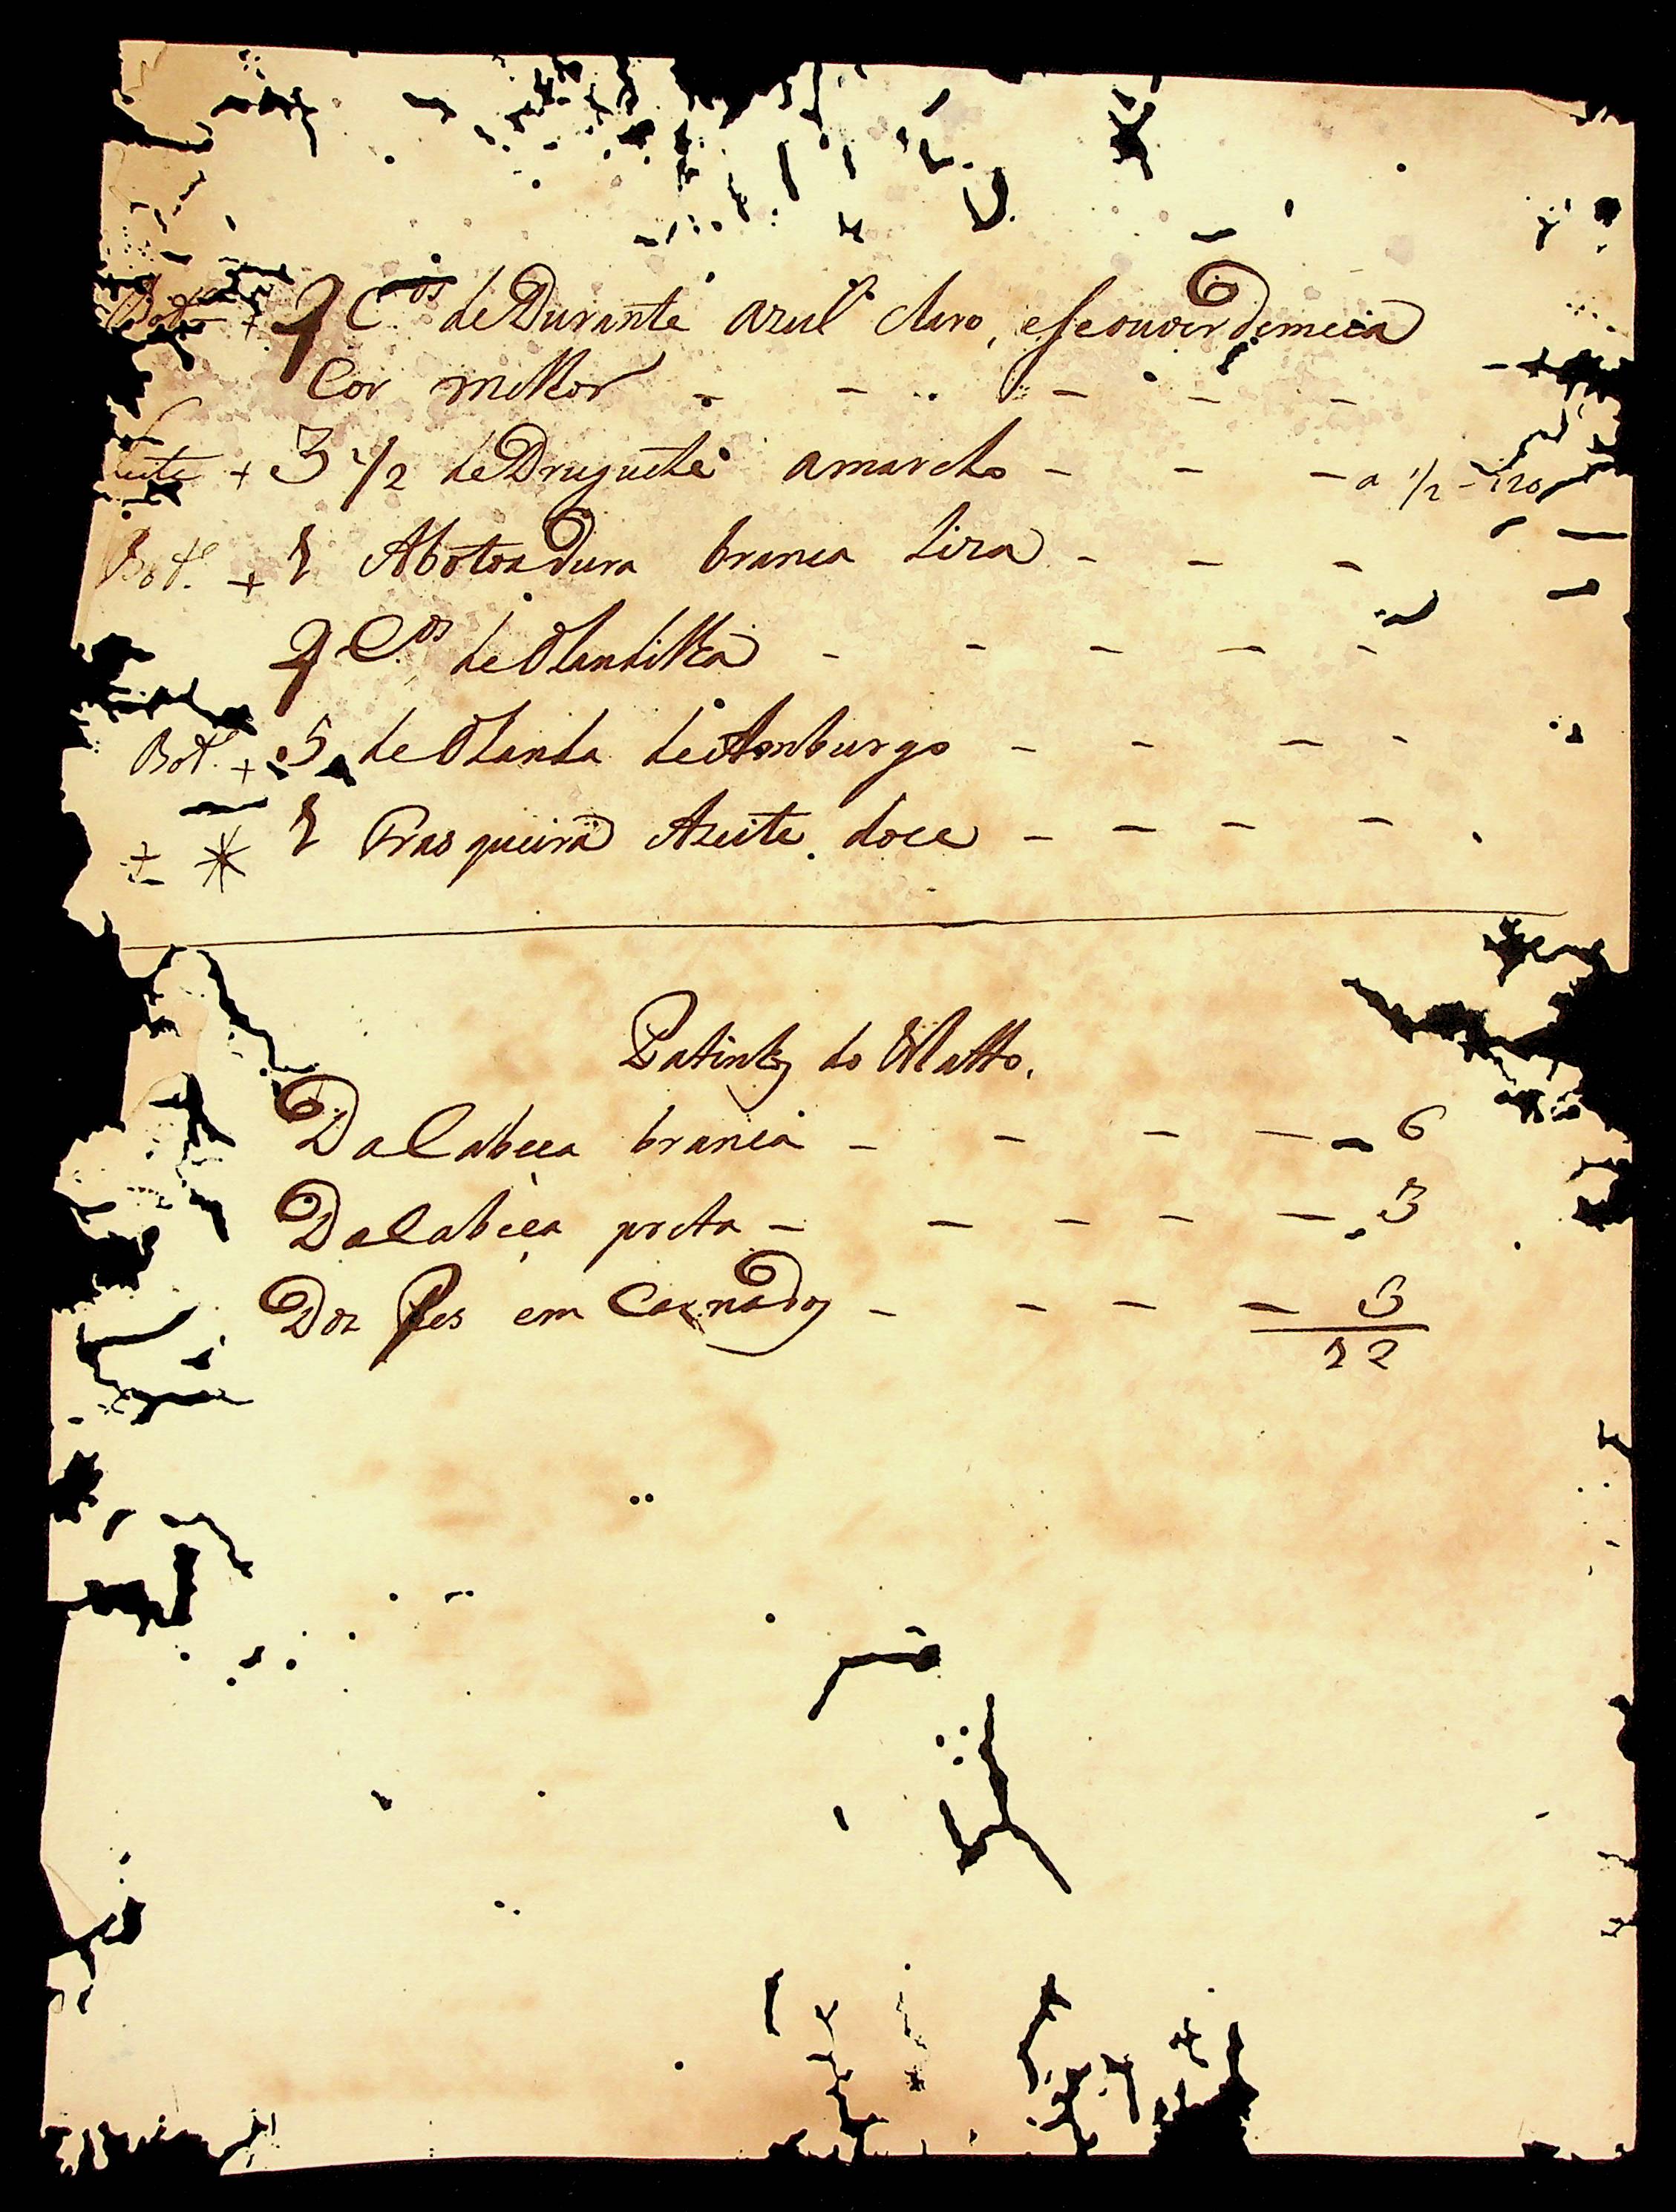 Bot.e + 9 C.os de Durante azul claro, e se ouver demeia
Cor milhor - - - - - -
+ 3 1/2 de Druguete amarelo - - - a 1/2 - 120
Bot.e + 1 Abotoadura branca Liza - - -
9 C.os de Olandilha - - - - -
Bot.e + 5 de Olanda de Amburgo - - - -
+ * 1 Frasqueira Azeite doce - - - -
Patinhos do Matto.
Da Cabeça branca - - - - - 6
Da Cabeça preta - - - - - 3
Dos Pes em Carnados - - - - 3
12